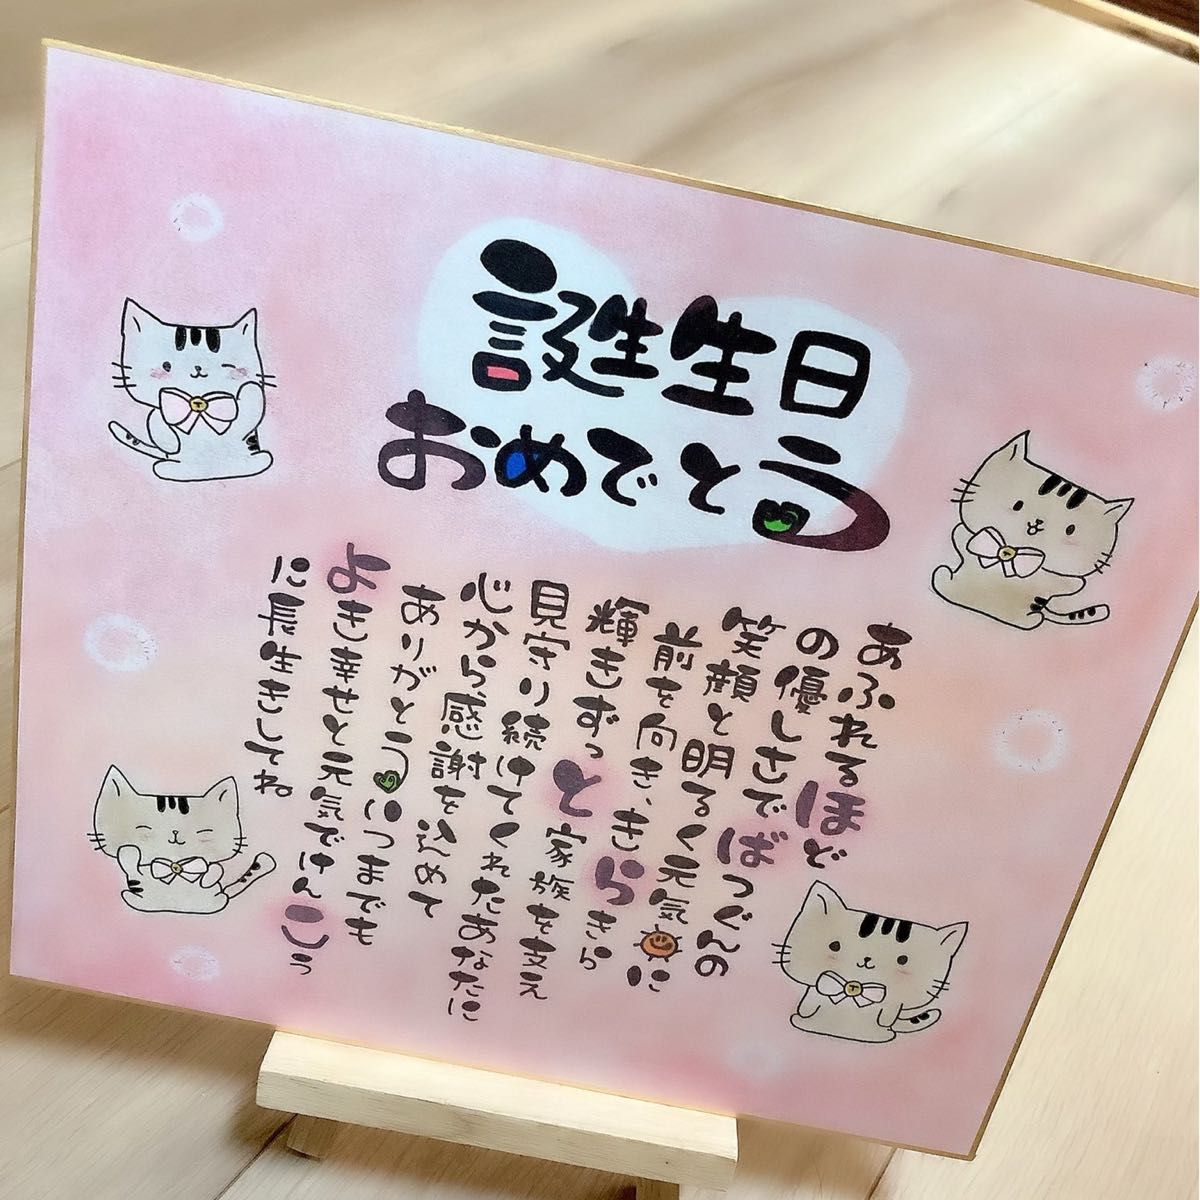 誕生日
おめでとう
あふれるほど
の優しさでばつぐんの
笑顔と明るく元気に
前を向き、きらきら
輝きずっと家族を支え
見守り続けてくれたあなたに
心から、感謝を込めて
ありがとう いつまでも
よき幸せと元気でけんこう
に長生きしてね